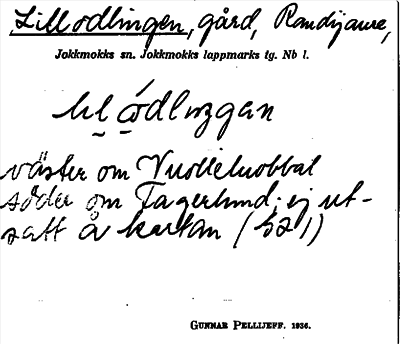 Lillodlingen, gård, Randijaure,
Jokkmokks sn. Jokkmokks lappmarks tg. Nb l.
väster om Vuolleluobbal
söder om Fagerlund; ej ut-
satt å kartan
GUNNAR PELLIJEFF. 1936.